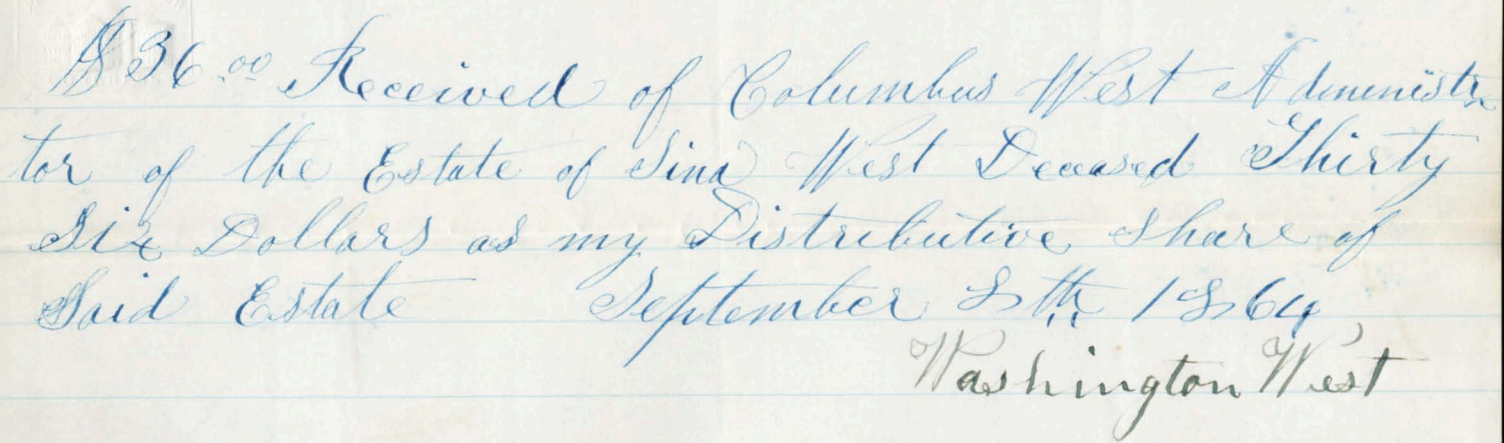 $36.00 Received of Columbus West Administra
tor of the Estate of Sina West Deceased Thirty
Six Dollars as my Distributive Share of
Said Estate September 8th 1864
Washington West